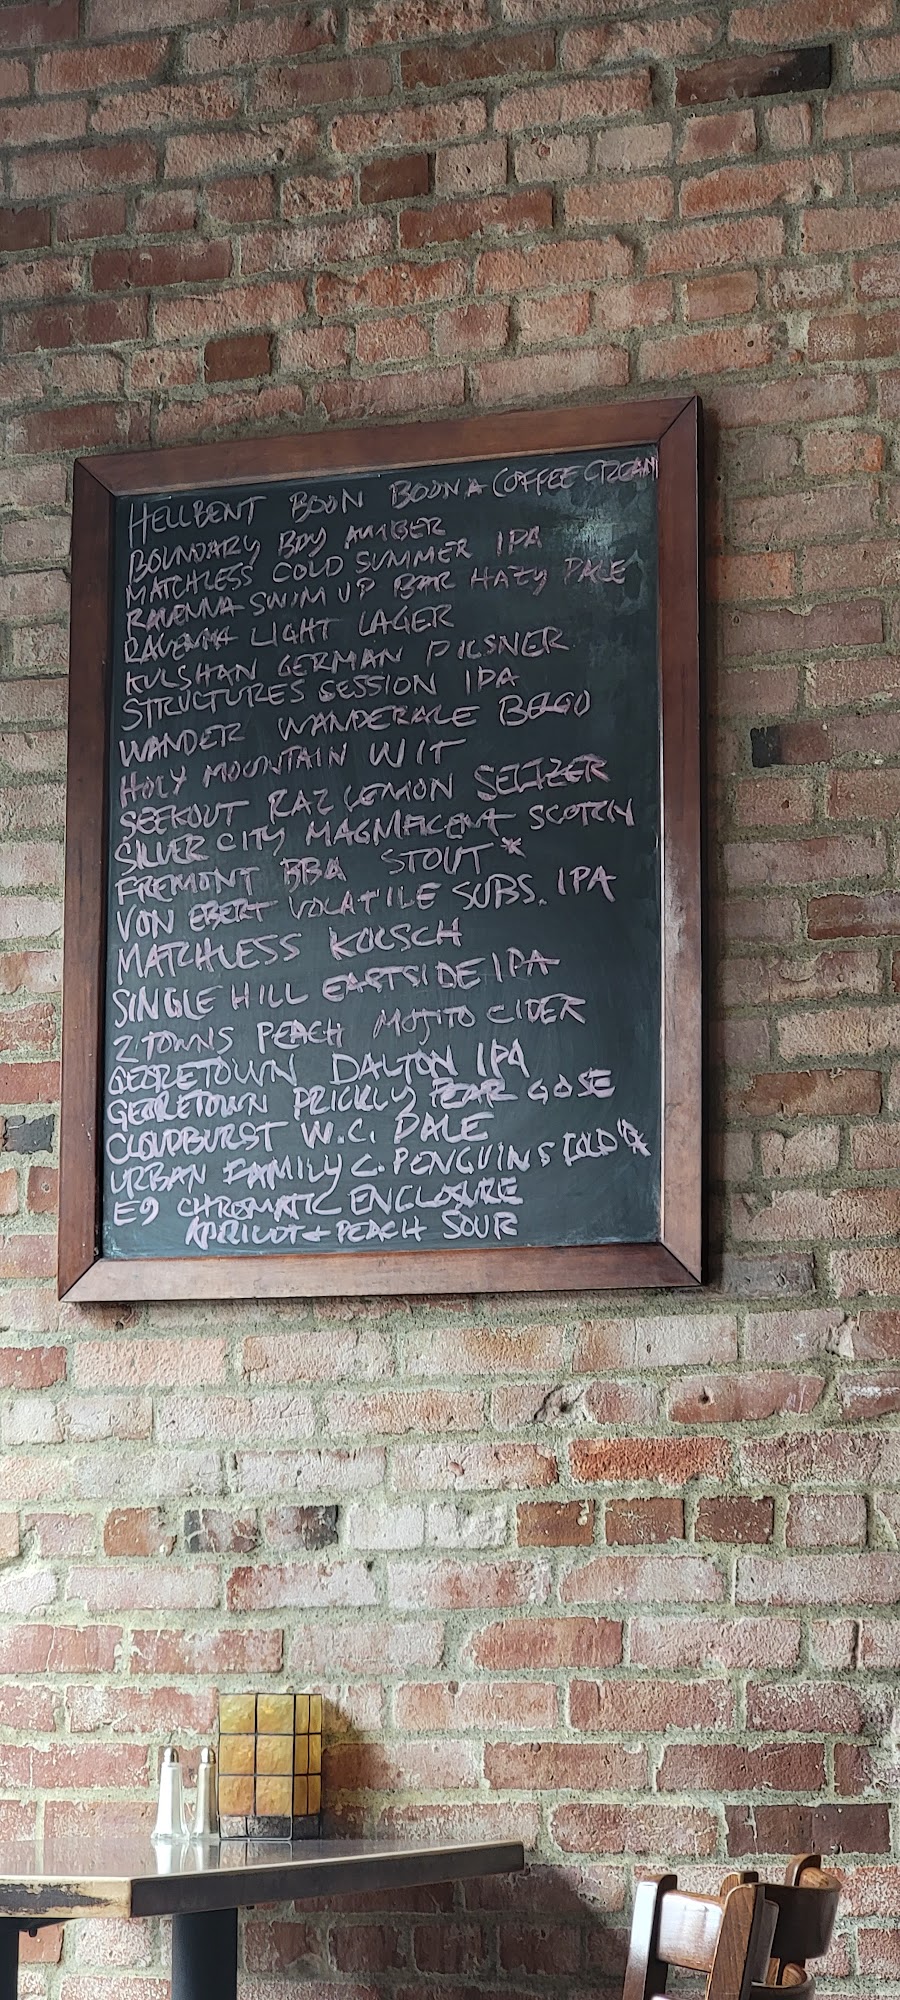 HELLBENT BOON BOONA COFFEE CREAM
BOUNDARY BAY AMBER
MATCHLESS COLD SUMMER IPA
RAVENNA SWIM UP BAR HAZY PALE
RAVENNA LIGHT LAGER
KULSHAN GERMAN PILSNER
STRUCTURES SESSION IPA
WANDER WANDERALE BELGO
HOLY MOUNTAIN WIT
SEEKOUT RAZ LEMON SELTZER
SILVER CITY MAGNIFICENT SCOTCH
FREMONT BBA STOUT*
VON EBERT VOLATILE SUBS. IPA
MATCHLESS KOLSCH
SINGLE HILL EASTSIDE IPA
2 TOWNS PEACH MOJITO CIDER
GEORGETOWN DALTON IPA
GEORGETOWN PRICKLY PEAR GOSE
CLOUDBURST W.C. PALE
URBAN FAMILY C. PENGUINS COLD
E9 CHROMATIC ENCLOSURE
APRICOT + PEACH SOUR